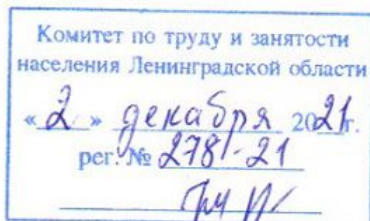 Комитет по труду и занятости
населения Ленинградской области
«2» декабря 2021г.
рег. № 278-21